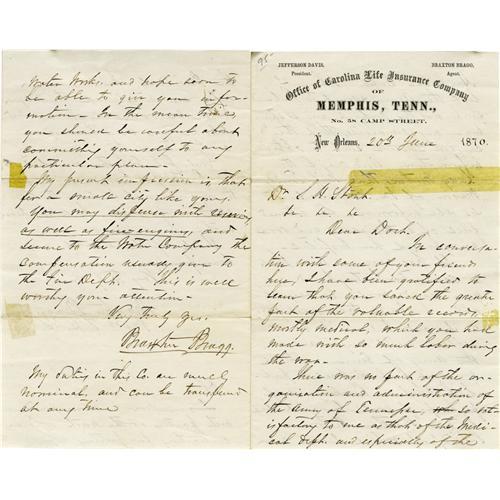 95
JEFFERSON DAVIS,
President.
BRAXTON BRAGG,
Agent.
Office of Carolina Life Insurance Company
OF
MEMPHIS, TENN.,
No. 58 CAMP STREET.
New Orleans, 20th June 1870.
Dr. S. H. Stout
&c. &c. &c
Dear Doct.
In conversa-
tion with some of your friends
here, I have been gratified to
learn that you saved the greater
part of the valuable records,
mostly medical, which you had
made with so much labor during
the war.
There was no part of the or-
ganization and administration of
the Army of Tennessee, so sat-
isfactory to me as that of the Medi-
cal Dept. and especially of the
Water Works, and hope soon to
be able to give you infor-
mation. In the mean time,
you should be careful about
committing yourself to any
particular plan.
My present impression is that
for a small city like yours,
you may dispense with
as well as fire engines, and
secure to the Water Company the
compensation usually given to
the Fire Dept. This is well
worthy your attention.
Very truly yrs.
Braxton Bragg.
My duties in this Co. are merely
nominal, and can be transferred
at any time